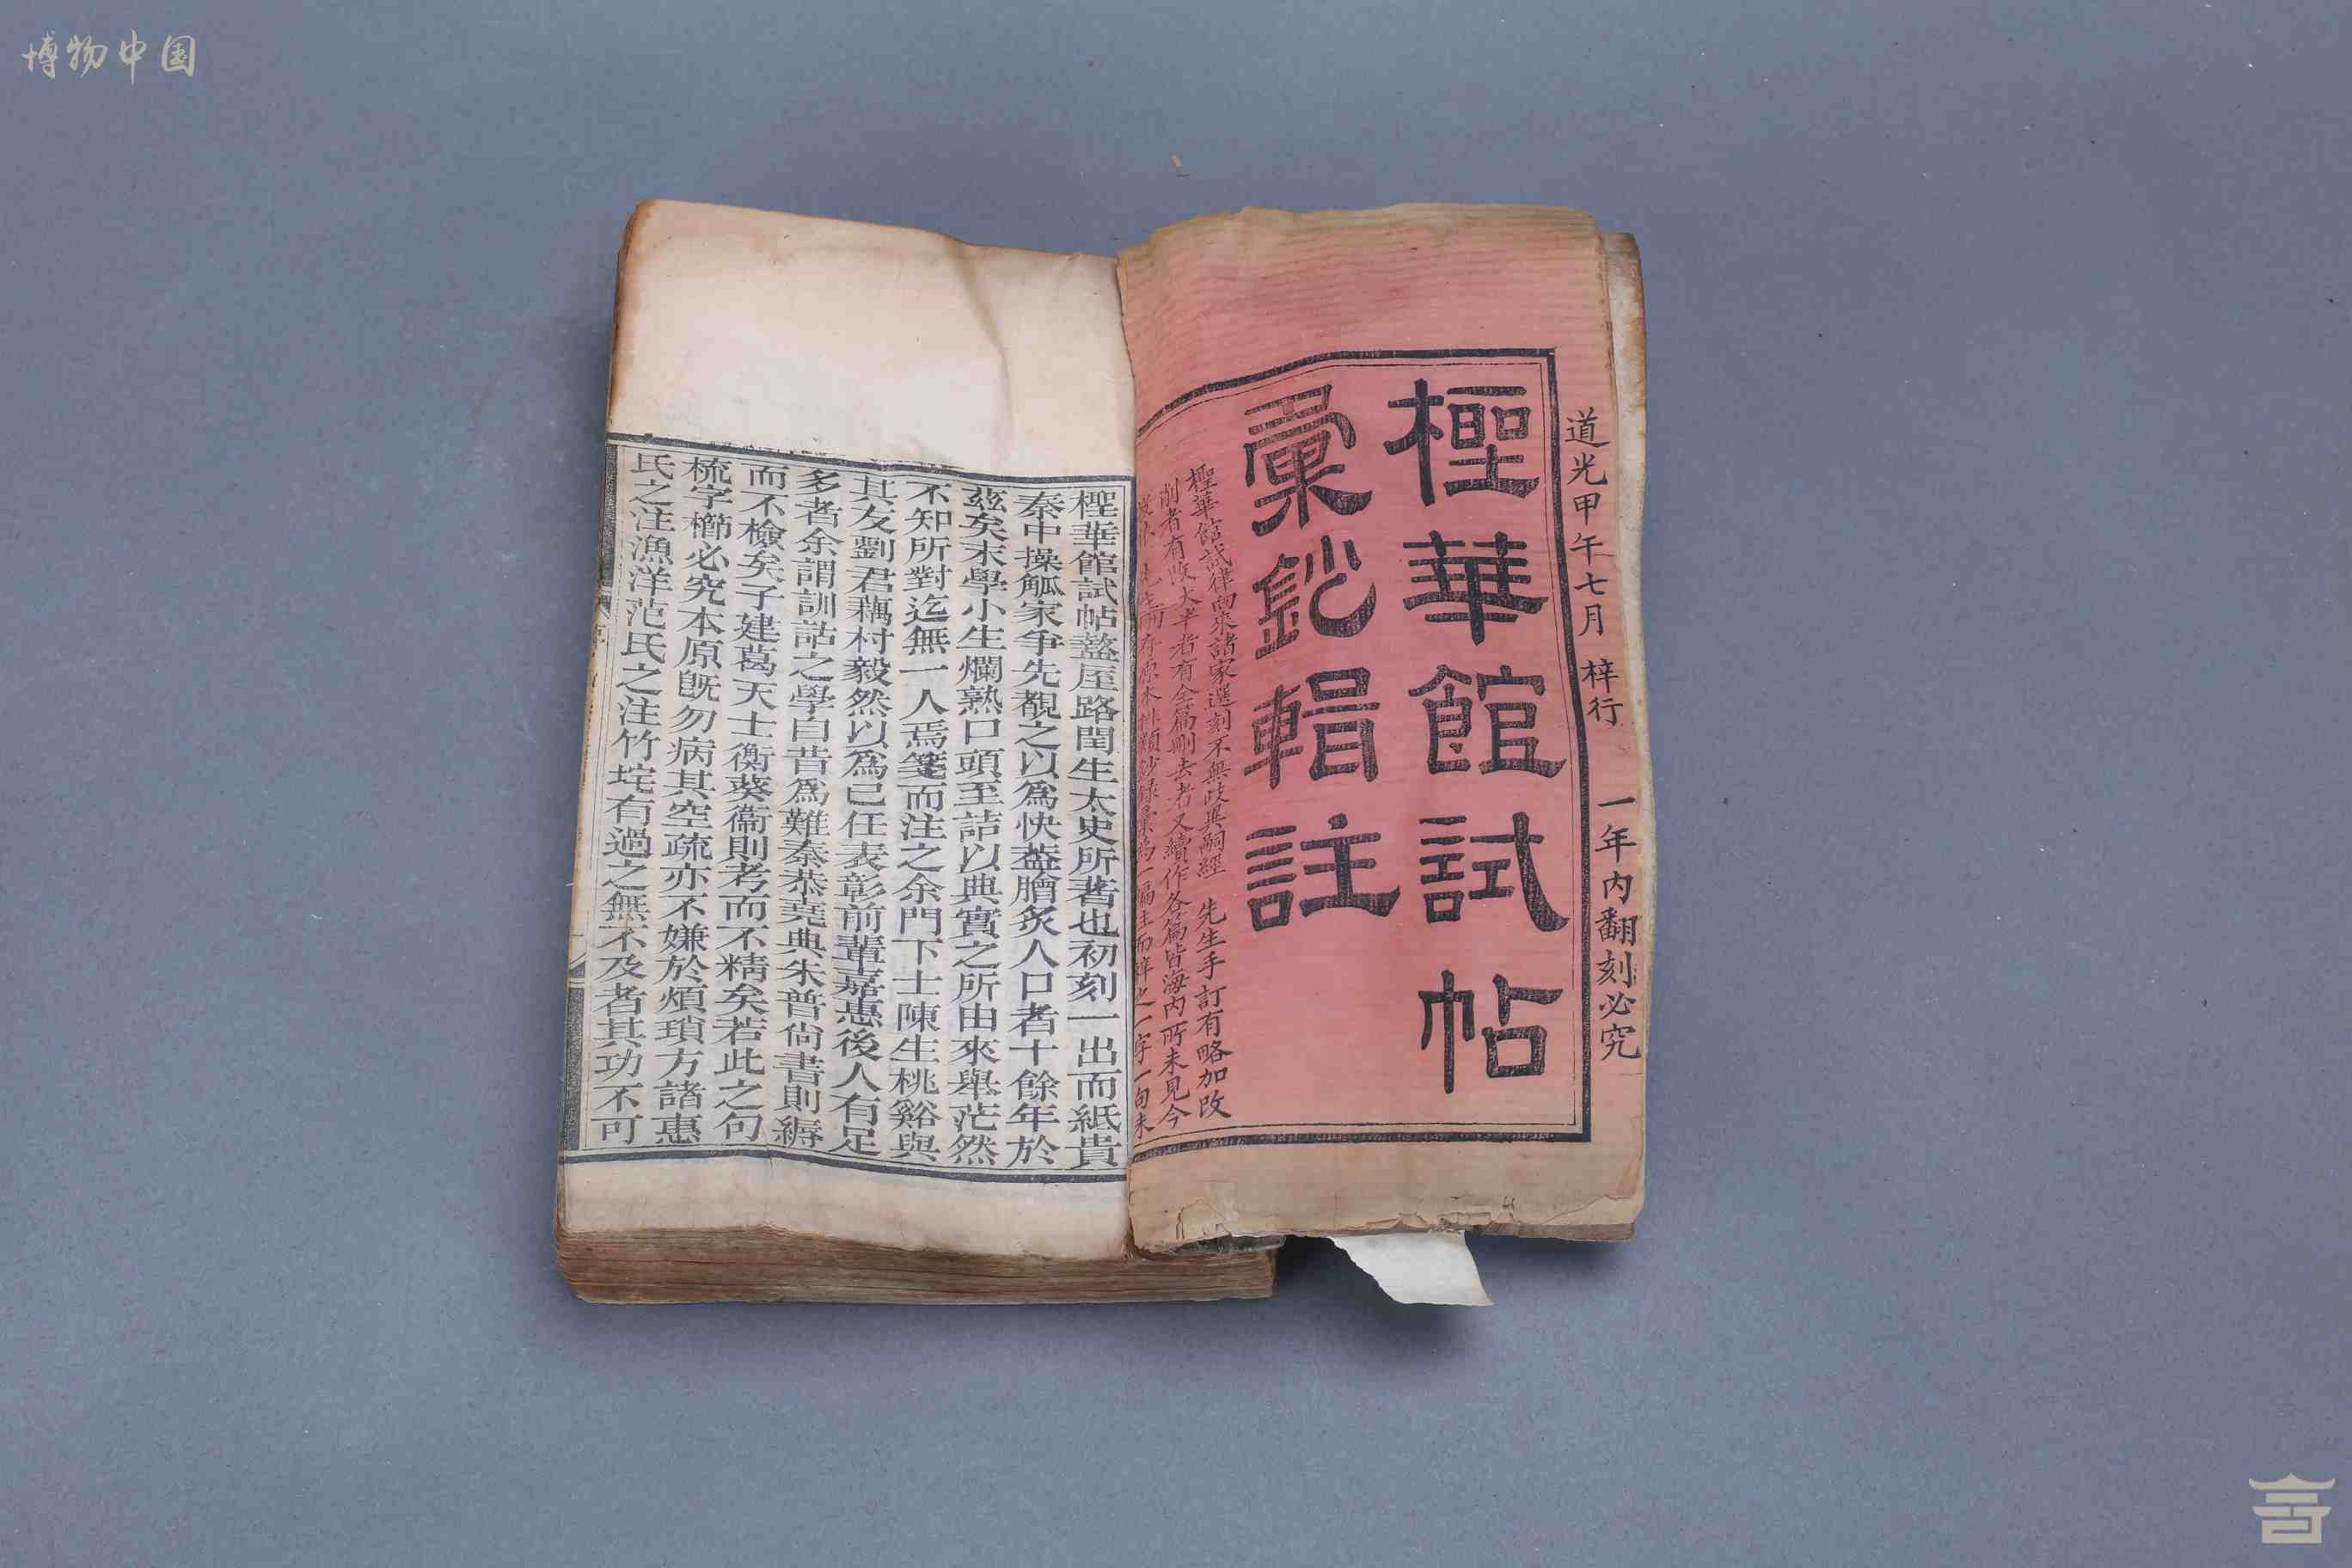 博物中国
道光甲午七月 梓行 一年內翻刻必究
檉華館試帖
彙鈔輯註
檉華館試律向來諸家選刻不無歧異嗣經 先生手訂有略加改
削者有改大半者有全篇刪去者又續作各篇皆海內所未見今
檉華館試帖盩厔路閏生太史所著也初刻一出而紙貴
秦中操觚家爭先覩之以為快葢膾炙人口者十餘年於
茲矣末學小生爛熟口頭至詰以典實之所由來舉茫然
不知所對迄無一人焉箋而注之余門下士陳生桃谿與
其友劉君藕村毅然以為己任表彰前輩嘉惠後人有足
多者余謂訓詁之學自昔為難秦恭堯典朱普尙書則縟
而不檢矣子建葛天士衡葵衞則考而不精矣若此之句
梳字櫛必究本原旣勿病其空疏亦不嫌於煩瑣方諸惠
氏之注漁洋范氏之注竹垞有過之無不及者其功不可